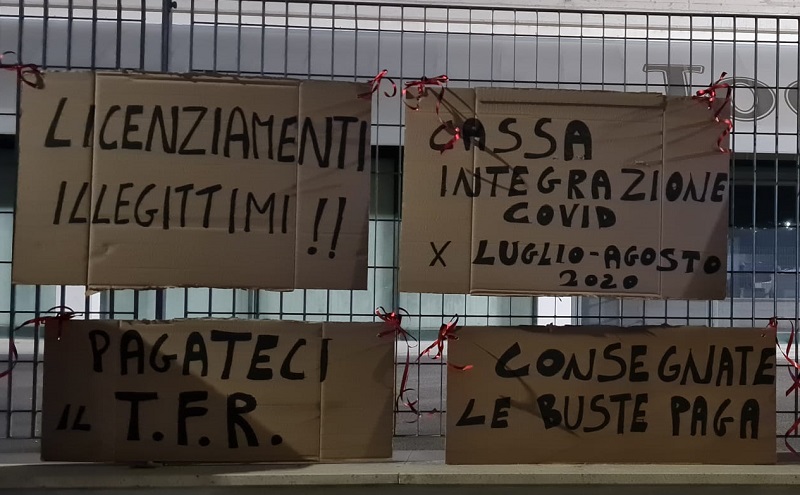 LICENZIAMENTI
ILLEGITTIMI !!
CASSA
INTEGRAZIONE
COVID
X LUGLIO-AGOSTO
2020
PAGATECI
IL T.F.R.
CONSEGNATE
LE BUSTE PAGA